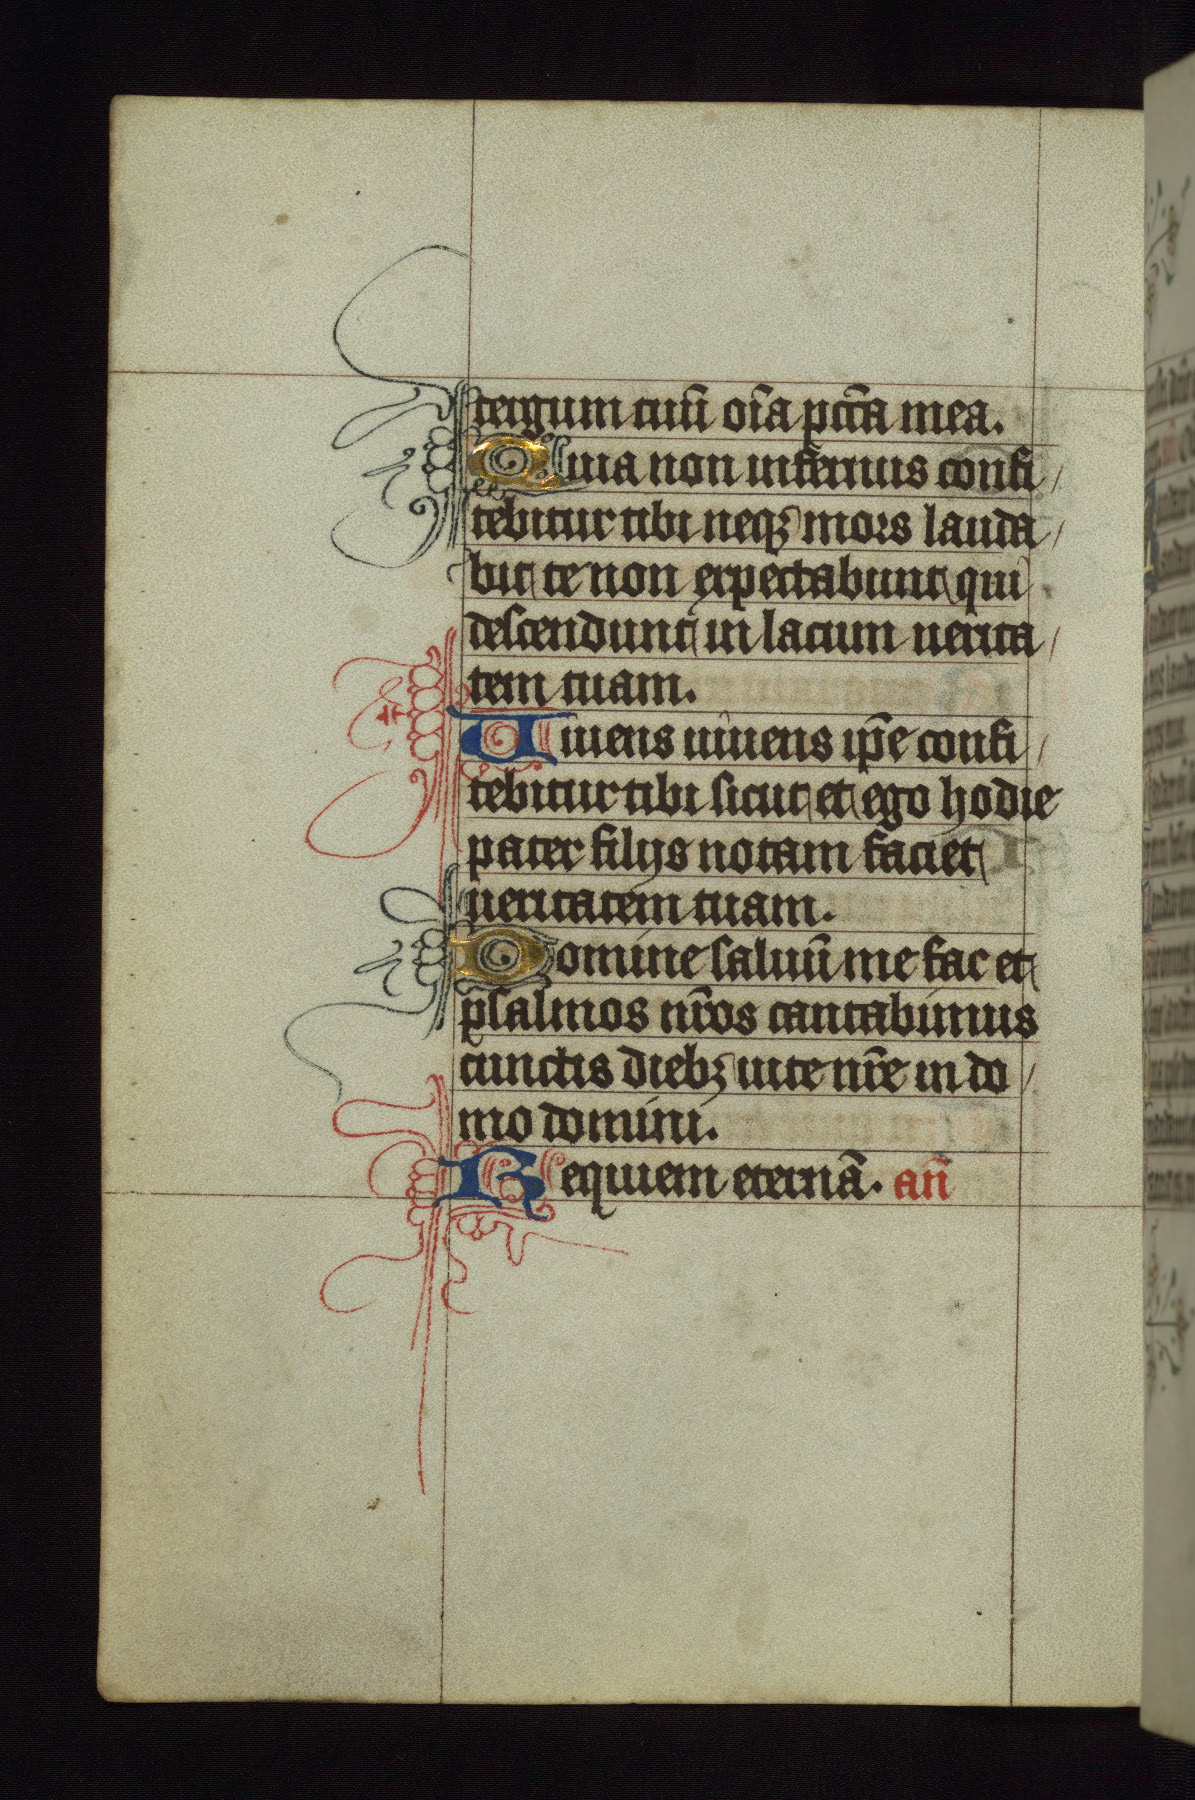 tergum tuū oīa pctā mea.
Quia non infernus confi/
tebitur tibi neqꝫ mors lauda/
bit te non expectabunt qui
descendunt in lacum uerita/
tem tuam.
Uiuens uiuens ip̄e confi/
tebitur tibi sicut et ego hodie
pater filijs notam faciet
ueritatem tuam.
Domine saluū me fac et
psalmos nr̄os cantabimus
cunctis diebꝫ uite nr̄e in do/
mo domini.
Requiem eternā. an̄